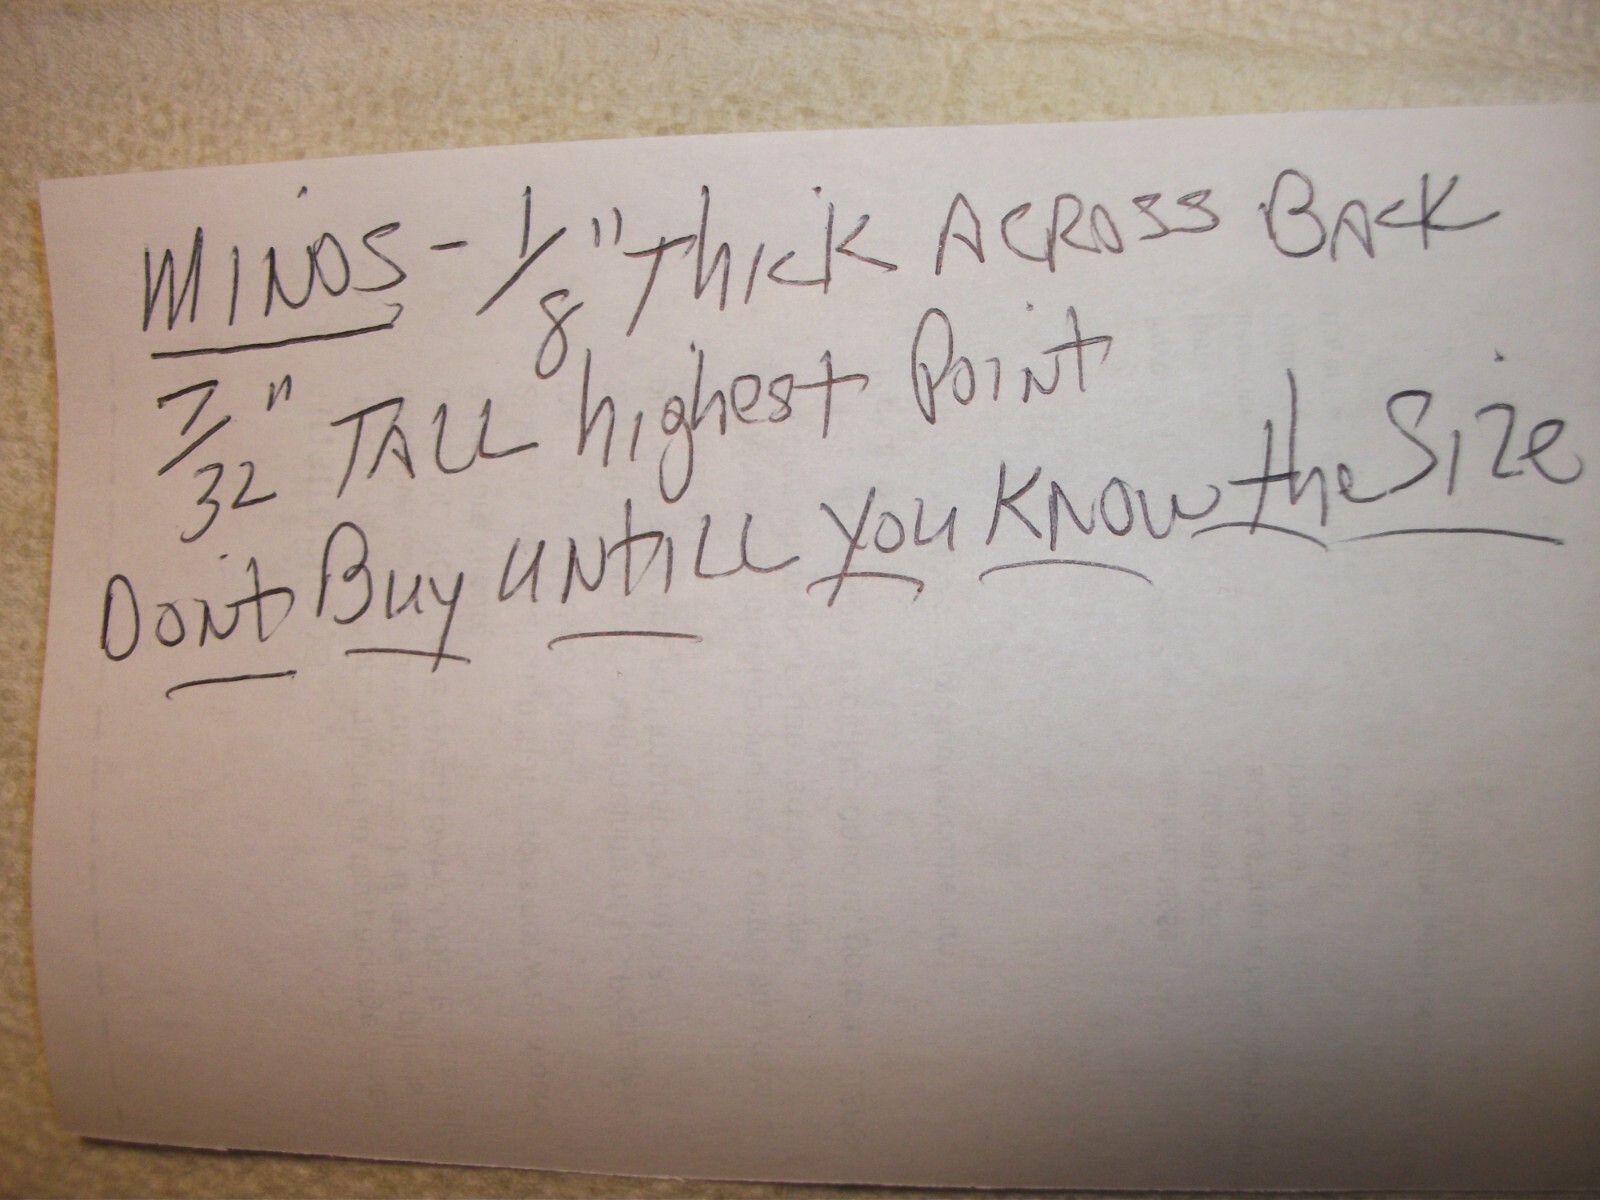 MINOS - 1/8" Thick ACROSS BACK
7/32" TALL highest POINT
DONT BUY UNTILL YOU KNOW the SIZE